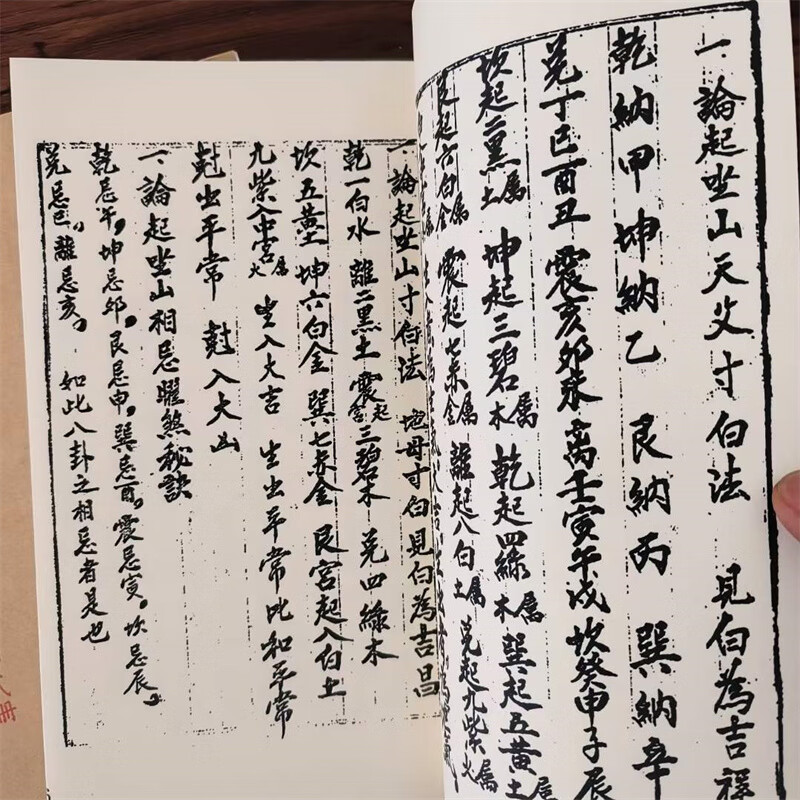 一論起坐山天父寸白法 見白為吉
乾納甲 坤納乙 艮納丙 巽納辛
兌丁巳酉丑 震亥卯未 离壬寅午戌 坎癸申子辰
坎起二黑属土 坤起三碧属木 乾起四綠属木 巽起五黄属土
艮起六白属金 震起七赤属金 離起八白属土 兌起九紫属火
一論起坐山寸白法 地母寸白見白為吉昌
乾一白水 離二黒土 震宮起三碧木 兌四綠木
坎五黄土 坤六白金 巽七赤金 艮宮起八白土
九紫入中宮属火 生入大吉 生出平常比和平常
尅出平常 尅入大凶
一論起坐山相忌曜煞秘訣
乾忌午。坤忌卯。艮忌申。巽忌酉。震忌寅。坎忌辰。
兌忌巳。離忌亥。 如此八卦之相忌者是也